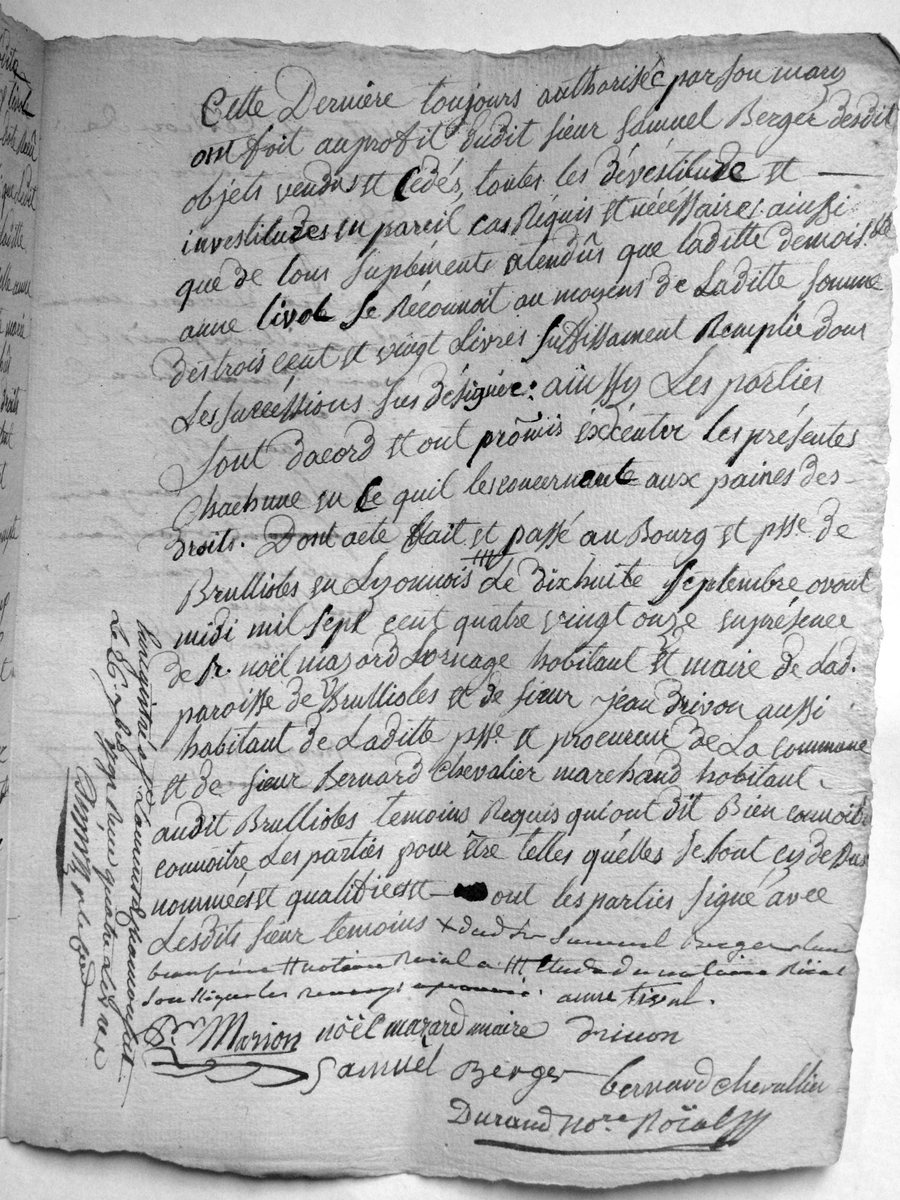 Cette Derniere toujours authorisée par son mary
ont fait au profit dudit sieur Samuel Berger desdit
objets vendus et Cédés, toutes les dévestitude et
investitudes en pareil cas Réquis et nécessaires ainssi
que de tous suplements attendûs que laditte demois.lle
anne tivol se Réconnoit au moyens de Laditte somme
des trois cent et vingt Livres suffissament Remplie dans
Les succéssions sus désignée: ainssy Les parties
sont dacord et ont prômis éxécuter les présentes
Chachune en Ce quil les concernante aux paines des
droits. Dont acte fait et passé au Bourg et psse de
Brullioles en Lyonnois Le dixhuite Septembre avant
midi mil sept cent quatre vingt onze en présence
de sr. noël mazard Lornage habitant et maire de Lad.
paroisse de Brullioles et de sieur Jean drivon aussi
habitant de Laditte psse et procureur de La commune
et de sieur Bernard Chevalier marchand habitant
audit Brullioles temoins Requis qui ont dit Bien connoitre
connoitre Les parties pour être telles quélles se sont cy dessus
nommées et qualifiées et ont les parties signé avec
Lesdits sieur temoins + dudsr Samuel Berger
sousigné les renvoys approuvé. anne tivol.
Mărion noël mazard maire drivon
Samuel Berger bernard chevallier
Durand nore Roïal